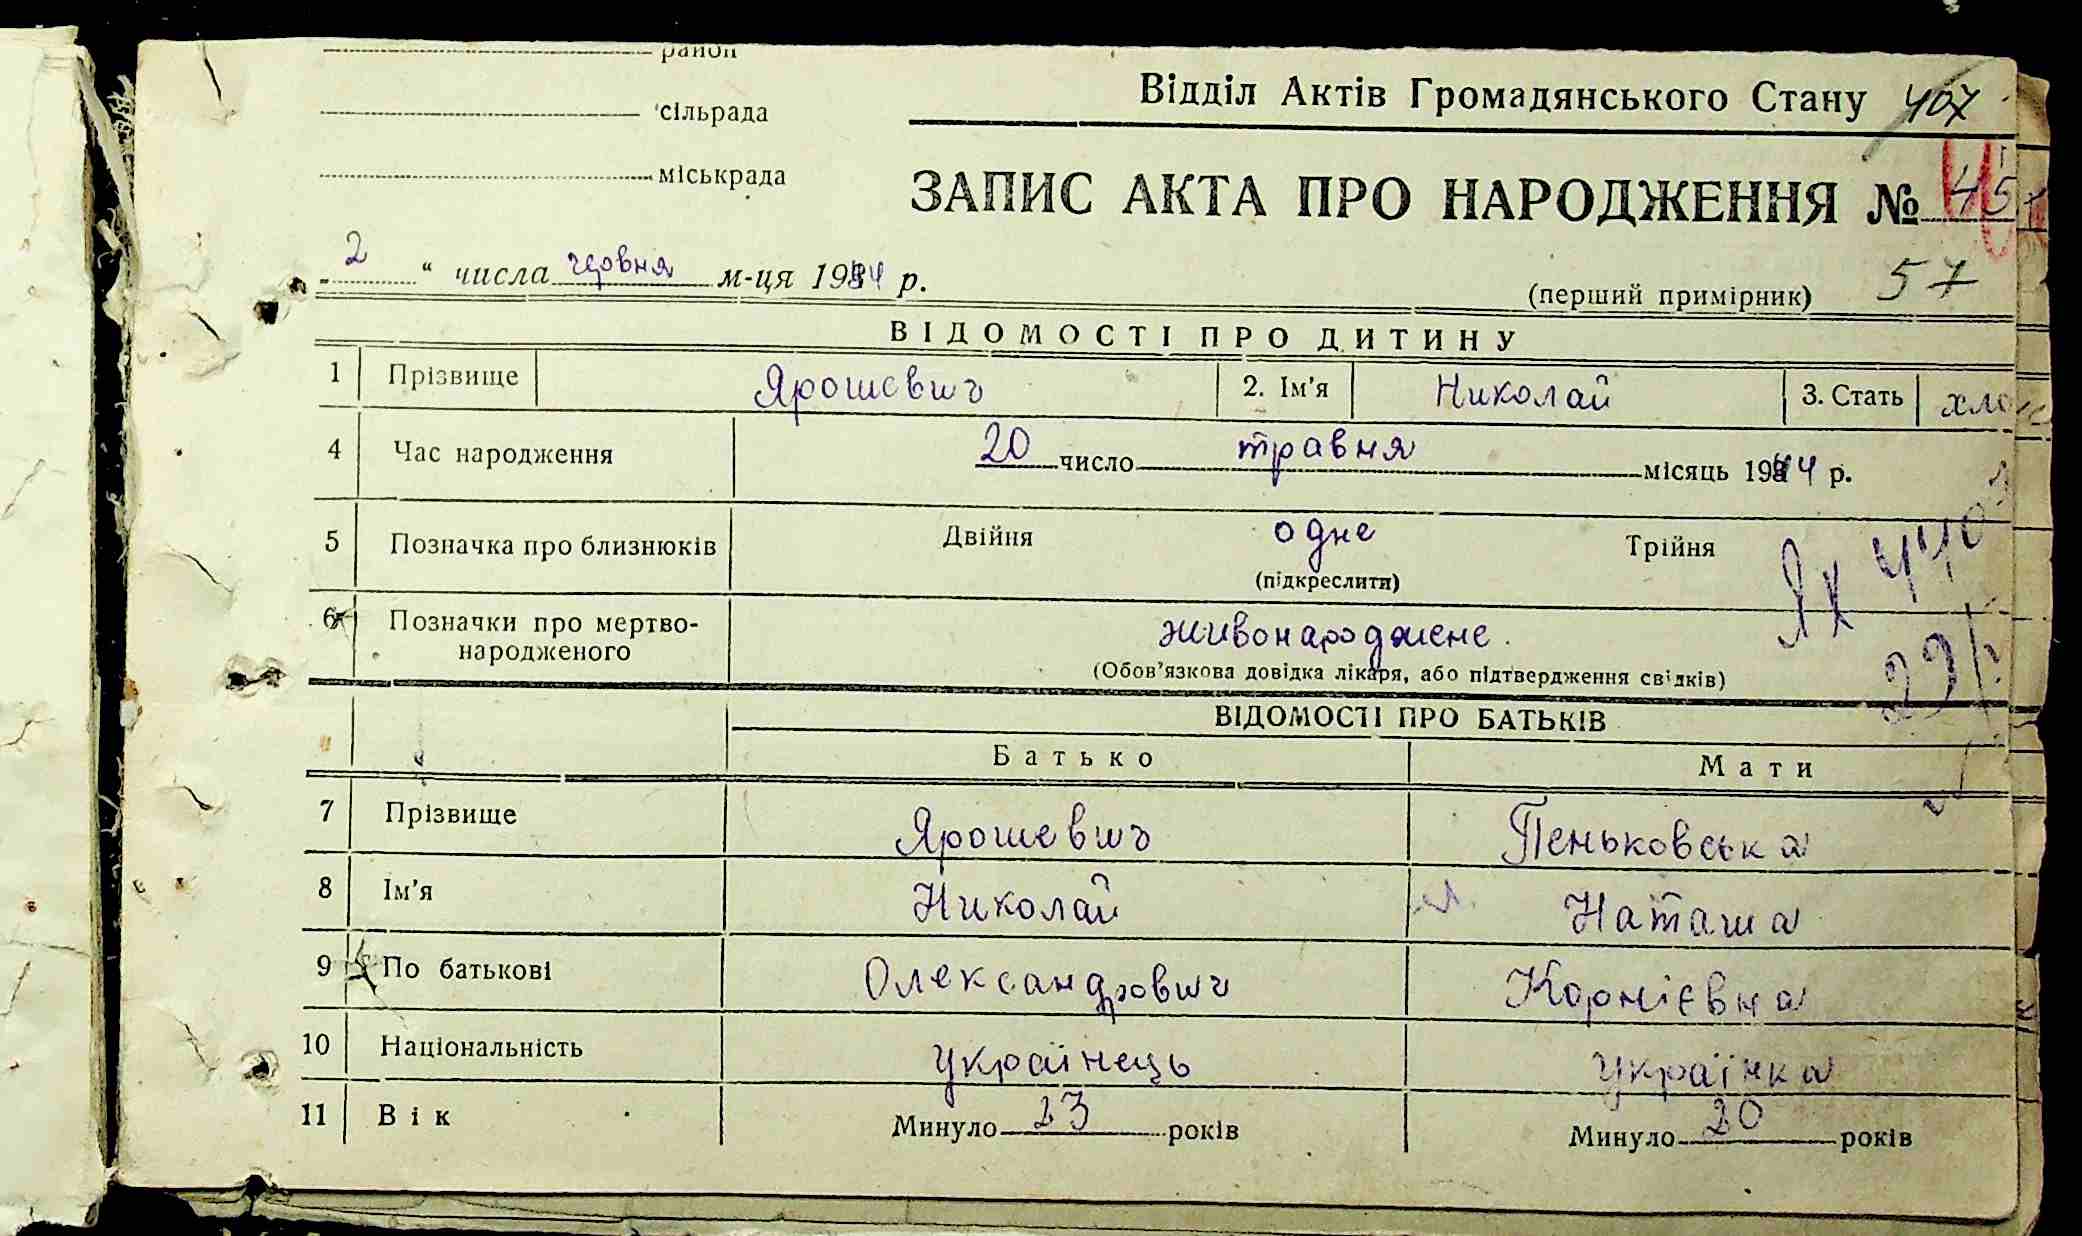 район
сільрада
міськрада
Відділ Актів Громадянського Стану 407
ЗАПИС АКТА ПРО НАРОДЖЕННЯ № 45
2 " числа червня м-ця 1944 р.
(перший примірник) 57
ВІДОМОСТІ ПРО ДИТИНУ
1 Прізвище Ярошевич 2. Ім'я Николай 3. Стать хло
4 Час народження 20 число травня місяць 1944 р.
5 Позначка про близнюків Двійня одне Трійня
(підкреслити)
6 Позначки про мертво-
народженого живонароджене.
(Обов'язкова довідка лікаря, або підтвердження свідків)
ВІДОМОСТІ ПРО БАТЬКІВ
Батько Мати
7 Прізвище Ярошевич Пеньковська
8 Ім'я Николай Наташа
9 По батькові Олександрович Корнієвна
10 Національність українець українка
11 Вік Минуло 23 років Минуло 20 років